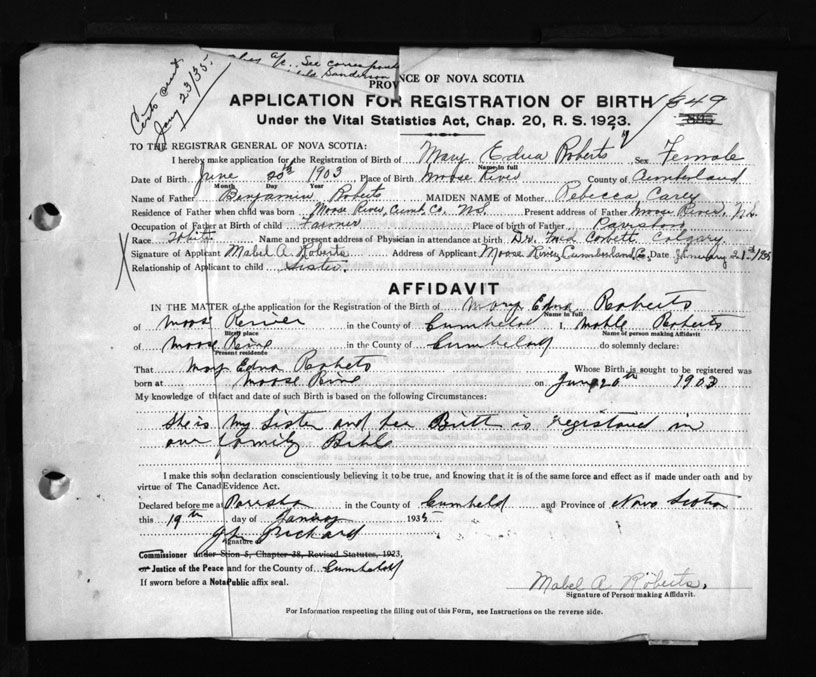 Certs sent
Jany 23/35.
a/c. See correspondence
Sanderson
PROV NCE OF NOVA SCOTIA
APPLICATION FOR REGISTRATION OF BIRTH
1849
Under the Vital Statistics Act, Chap. 20, R. S. 1923.
TO THE REGISTRAR GENERAL OF NOVA SCOTIA:
I hereby make application for the Registration of Birth of Mary Edna Roberts Sex Female
Name in full
Date of Birth June 20th 1903 Place of Birth Moose River County of Cumberland
Month Day Year
Name of Father Benjamin Roberts MAIDEN NAME of Mother Rebecca Carey
Residence of Father when child was born Moose River, Cumb. Co. N.S. Present address of Father Moose River. N.S.
Occupation of Father at Birth of child Farmer Place of birth of Father Parrsboro
Race White Name and present address of Physician in attendance at birth Dr. Corbett, Calgary.
Signature of Applicant Mabel A. Roberts Address of Applicant Moose River, Cumberland Co. Date January 21st 1935
Relationship of Aplicant to child Sister.
AFFIDAVIT
IN THE MATTER of the application for the Registration of the Birth of Mary Edna Roberts
Name in full
of Moose River in the County of Cumbeland I, Mable Roberts
Birth place Name of person making Affidavit
of Moose River in the County of Cumbeland do solemnly declare:
Present residence
That Mary Edna Roberts Whose Birth is sought to be registered was
born at Moose River on June 20th 1903
My knowledge of th fact and date of such Birth is based on the following Circumstances:
She is my Sister and her Birth is registered in
our family Bible
I make this solmn declaration conscientiously believing it to be true, and knowing that it is of the same force and effect as if made under oath and by
virtue of The Canad Evidence Act.
Declared before me at Parrsboro in the County of Cumbeland and Province of Nova Scotia
this 19th day of January 1935
Rickard
Signature
Commissioner under Scion 5, Chapter 38, Revised Statutes, 1923,
or Justice of the Peace and for the County of Cumbeland
If sworn before a Nota Public affix seal.
Mabel A Roberts.
Signature of Person making Affidavit.
For Information respecting the filling out of this Form, see Instructions on the reverse side.